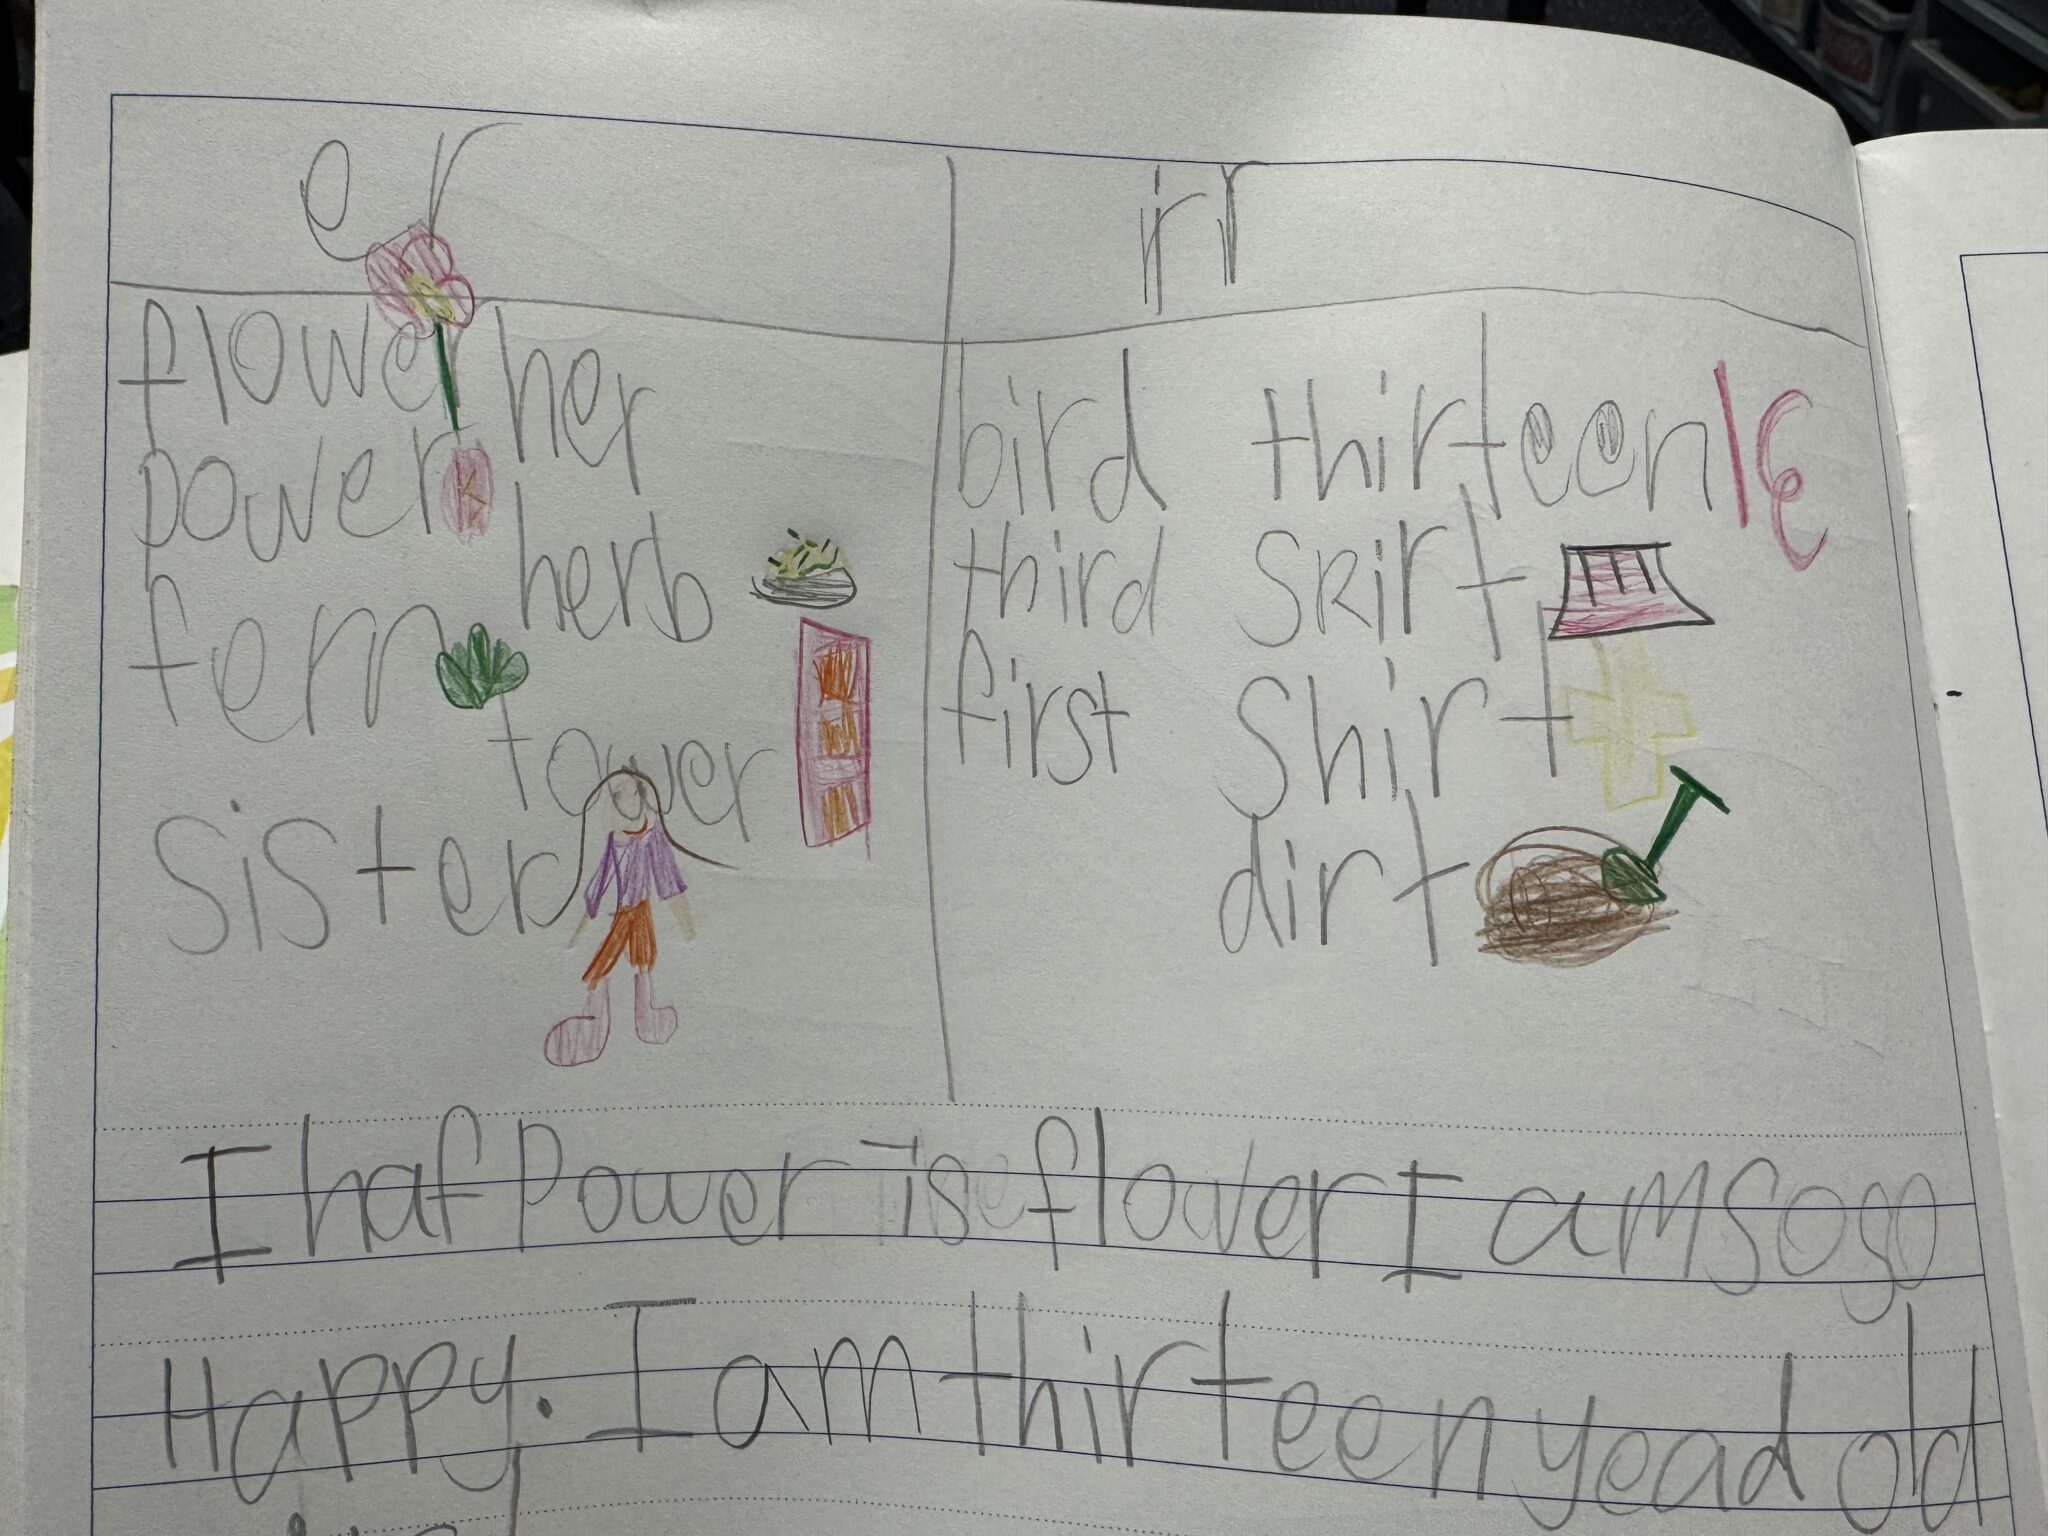 er
irr
flower her
power
herb
fern
tower
sister
bird thirteen 13
third skirt
first shirt
dirt
I haf Power is flower I am so so
Happy. I am thirteen yead old